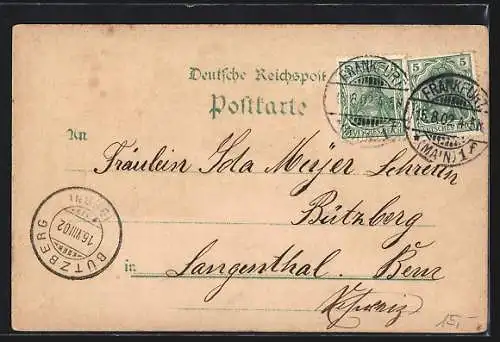 Deutsche Reichspost
Postkarte
5
5
FRANKFURT
15.8.02
(MAIN) 1
FRANKFURT
15.8.02
(MAIN) 1
An
Fräulein Ida Meyer
Bützberg
in Langenthal. Bern
Schweiz
BÜTZBERG
16.VIII.02
(BERN)
15,-